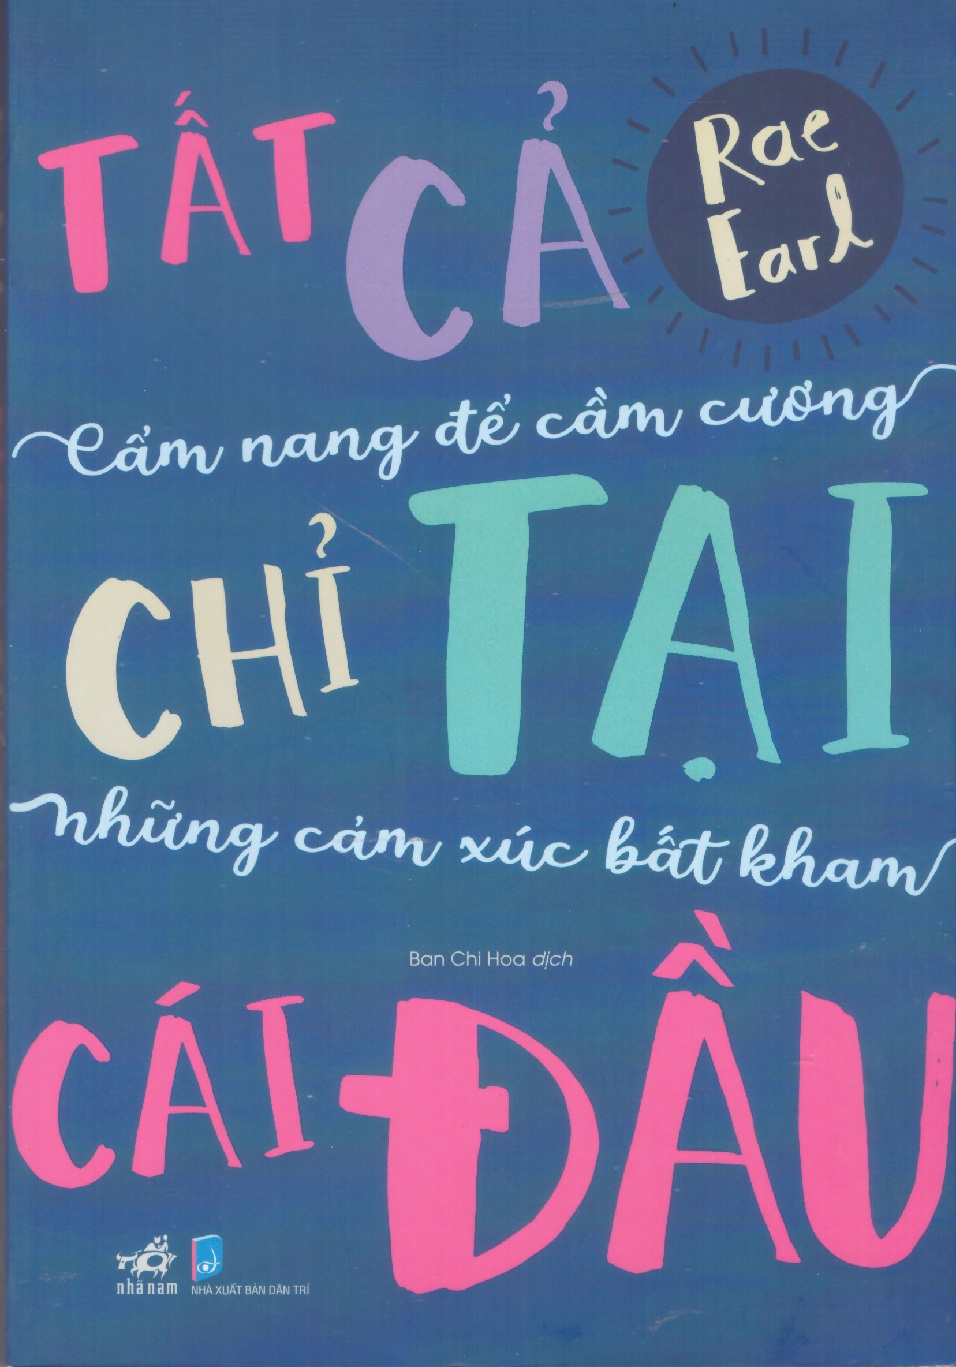 TẤT CẢ
Rae
Earl
Cẩm nang để cầm cương
CHỈ TẠI
những cảm xúc bất kham
Ban Chi Hoa dịch
CÁI ĐẦU
nhã nam
NHÀ XUẤT BẢN DÂN TRÍ